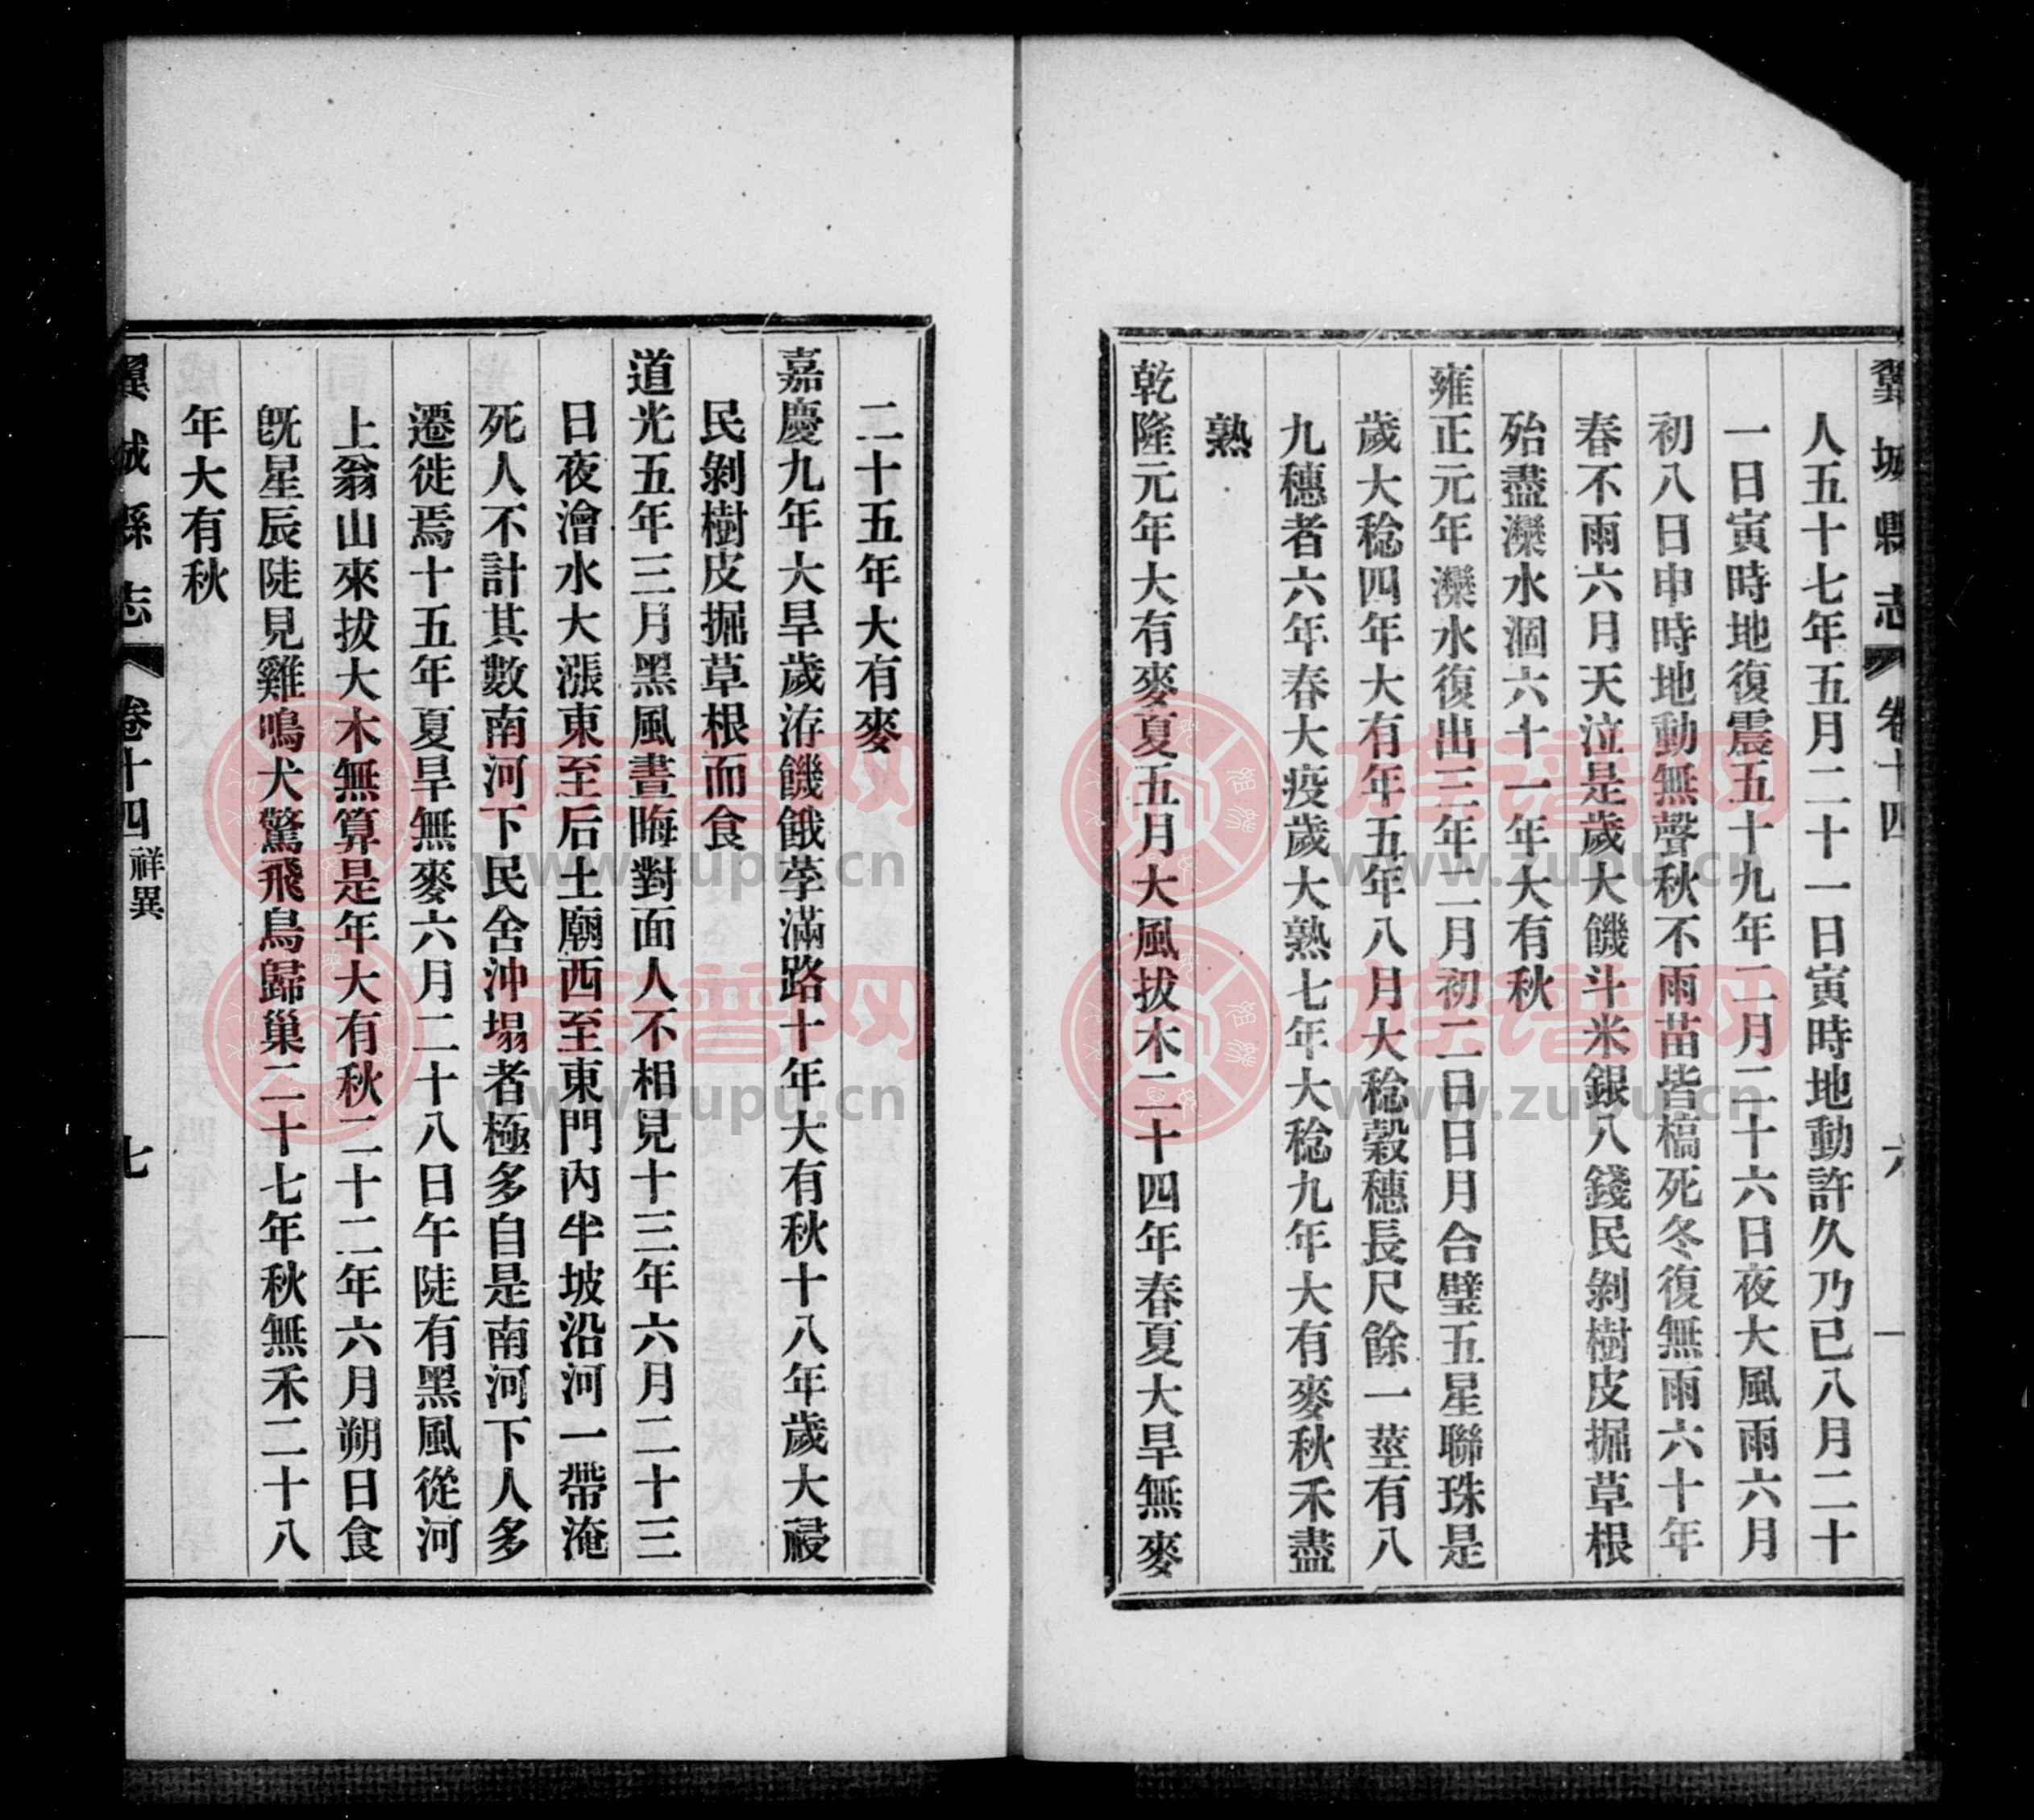 翼城縣志 卷十四 六
人五十七年五月二十一日寅時地動許久乃已八月二十
一日寅時地復震五十九年二月二十六日夜大風雨六月
初八日申時地動無聲秋不雨苗皆槁死冬復無雨六十年
春不雨六月天泣是歲大饑斗米銀八錢民剝樹皮掘草根
殆盡灤水涸六十一年大有秋
雍正元年灤水復出三年二月初二日日月合璧五星聯珠是
歲大稔四年大有年五年八月大稔穀穗長尺餘一莖有八
九穗者六年春大疫歲大熟七年大稔九年大有麥秋禾盡
熟
乾隆元年大有麥夏五月大風拔木二十四年春夏大旱無麥
二十五年大有麥
嘉慶九年大旱歲洊饑餓莩滿路十年大有秋十八年歲大祲
民剝樹皮掘草根而食
道光五年三月黑風晝晦對面人不相見十三年六月二十三
日夜澮水大漲東至后土廟西至東門內半坡沿河一帶淹
死人不計其數南河下民舍沖塌者極多自是南河下人多
遷徙焉十五年夏旱無麥六月二十八日午陡有黑風從河
上翁山來拔大木無算是年大有秋二十二年六月朔日食
旣星辰陡見雞鳴犬驚飛鳥歸巢二十七年秋無禾二十八
年大有秋
翼城縣志 卷十四 祥異 七
族谱网
www.zupu.cn
族谱网
www.zupu.cn
族谱网
www.zupu.cn
族谱网
www.zupu.cn